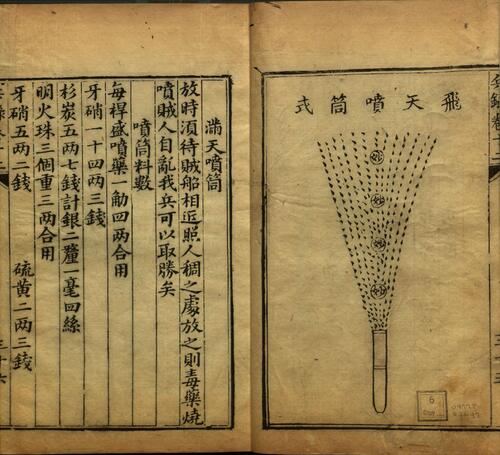 飛天噴筒式
滿天噴筒
放時須待賊船相近照人稠之處放之則毒藥燒
噴賊人自亂我兵可以取勝矣
噴筒料數
每桿盛噴藥一觔四兩合用
牙硝一十四兩三錢
杉炭五兩七錢計銀二釐一毫四絲
明火珠三個重三兩合用
牙硝五兩二錢 硫黃二兩三錢
三十六
6